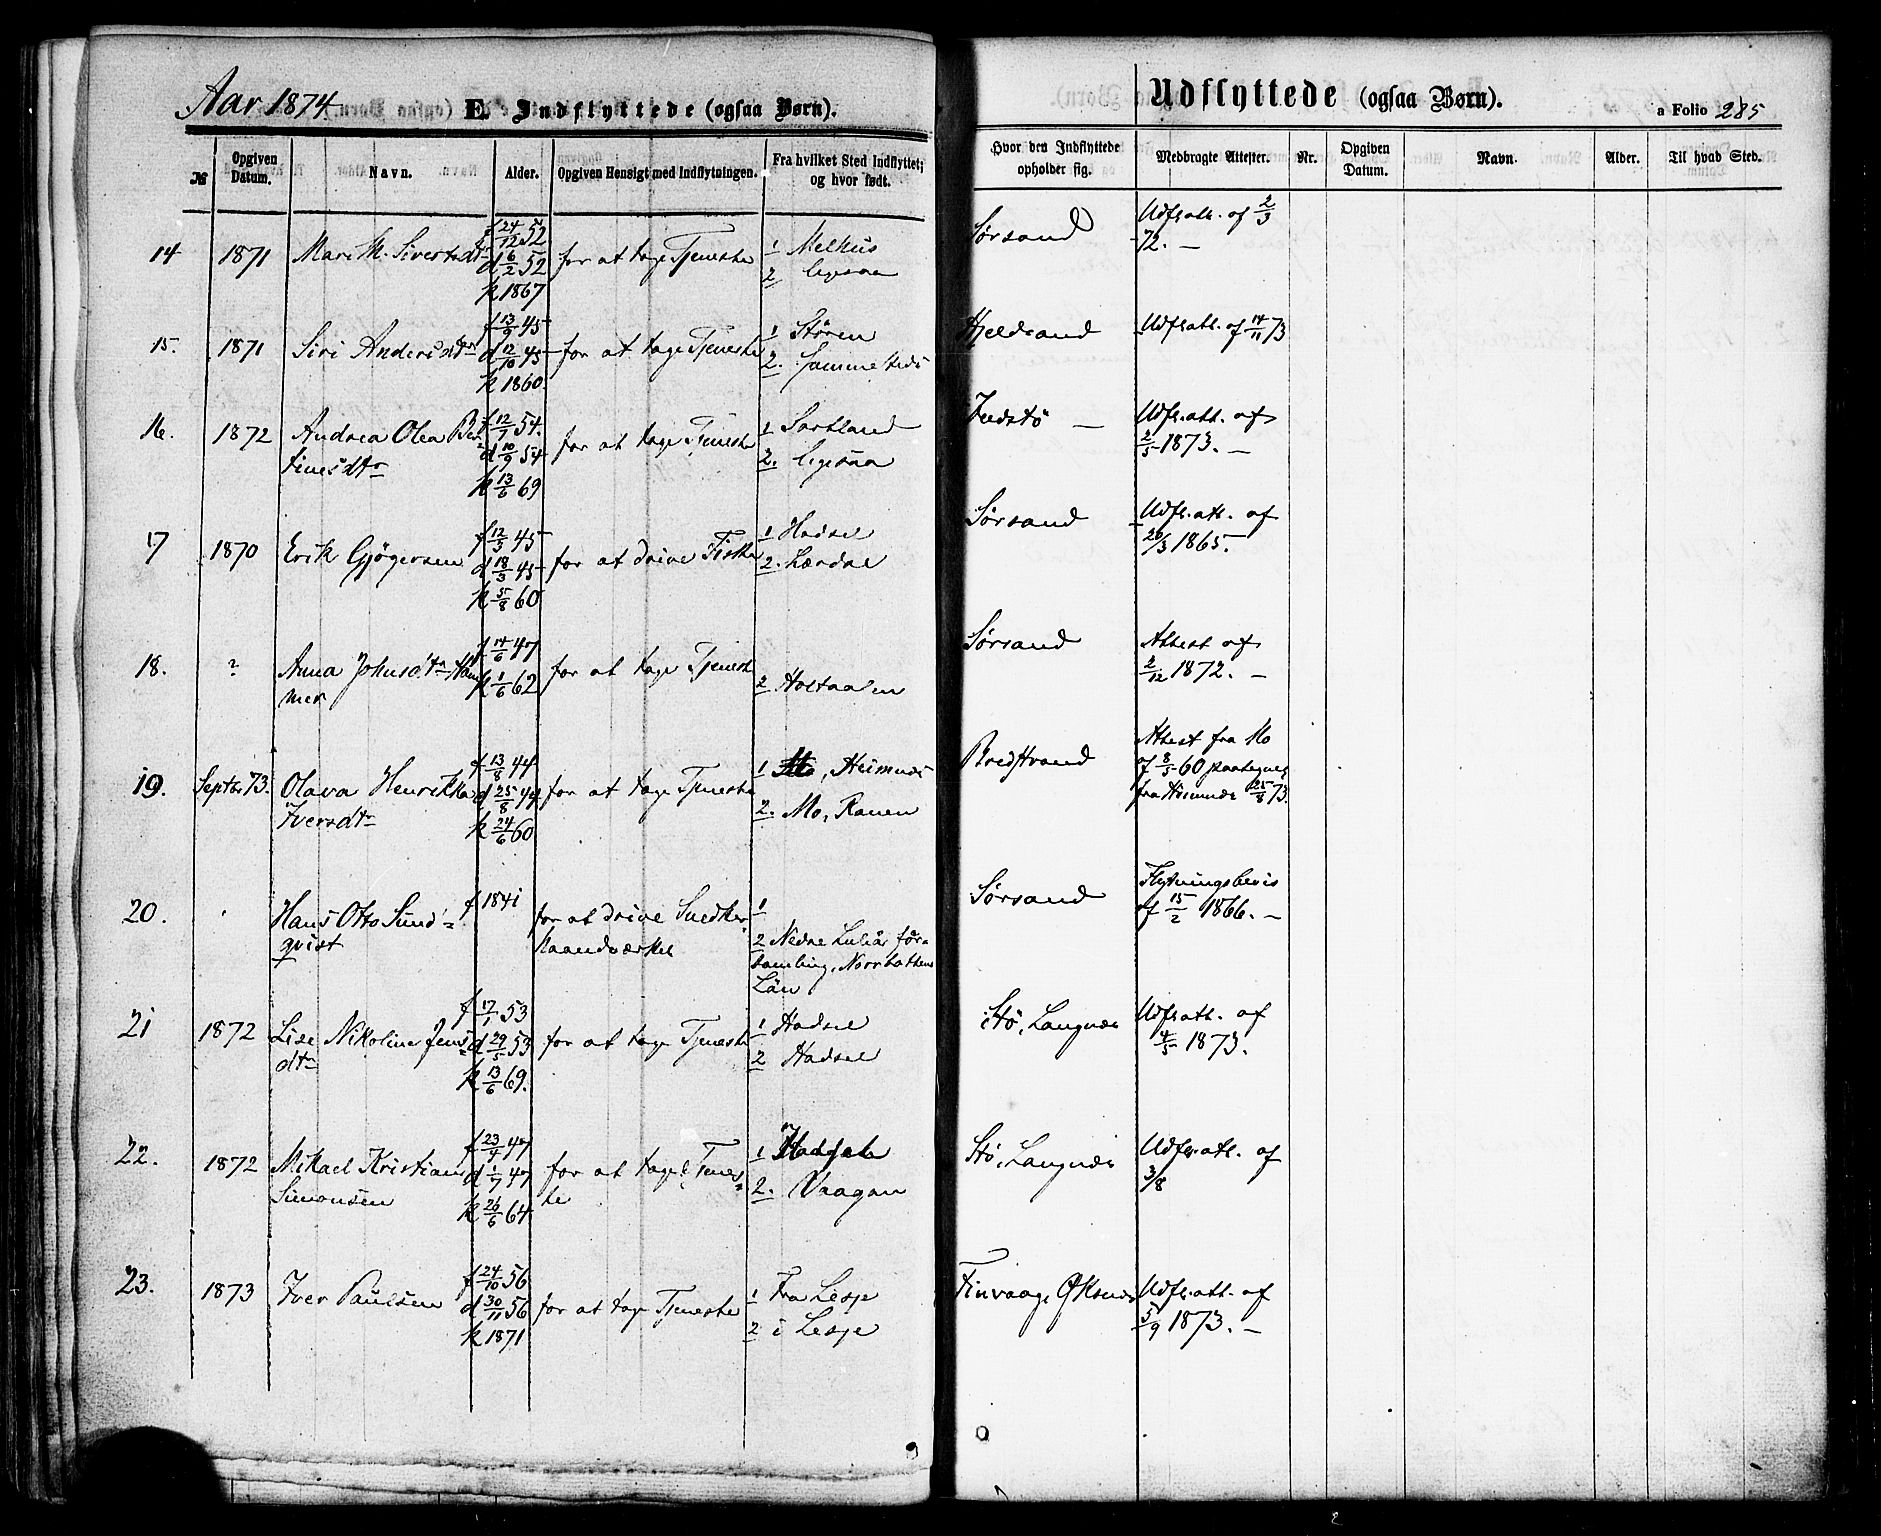 Aar 1874
E. Indflyttede (ogsaa Børn).
Udflyttede (ogsaa Børn).
a Folio 285
№
Opgiven Datum.
Navn.
Alder.
Opgiven Hensigt med Indflytningen.
Fra hvilket Sted Indflyttet; og hvor født.
Hvor den Indflyttede opholder sig.
Medbragte Attester.
Nr.
Opgiven Datum.
Navn.
Alder.
Til hvad Sted.
14 1871 Mari M. Sivertsdtr f 24/12 52 d 6/2 52 k 1867 for at tage Tjeneste 1 Melhus 2 ligesaa Sørsand Udfl.att. af 2/3 72. —
15. 1871 Siri Andersdtr f 13/9 45 d 12/10 45 k 1860. for at tage Tjeneste 1 Støren 2. Sammesteds Udfl.att. af 14/11 73
16. 1872 Andrea Olea Ber tinesdtr f 12/7 54. d 10/9 54 k 13/6 69 for at tage Tjeneste 1 Sortland 2. ligesaa Udfl.att. af 2/5 1873. —
17 1870 Erik Gjøgersen f 12/3 45 d 18/3 45 k 5/8 60 for at drive Fiske 1 Hadsel 2. Lærdal Sørsand Udfl.att. af 26/3 1865.
18. ? Anna Johnsdtr Ham mer f 14/6 47 k 1/6 62 for at tage Tjenest 2 Holtaalen Sørsand Attest af 2/12 1872. —
19. Septbr 73. Olava Henrikka Iversdtr f 13/8 44 d 25/8 44 k 24/6 60 for at tage Tjeneste 1 Mo, 2. Mo, Ranen Bredstrand Attest fra Mo af 8/5 60 paategnet fra 25/8 73.
20. Hans Otto Sund= qvist f 1841 for at drive Snedker= haandværket 1 2 Nedre Luleår för= samling, Norrbottens Län Sørsand Flytningsbevis af 15/2 1866. —
21 1872 Lise Nikoline Jens= dtr f 17/1 53 d 29/5 53 k 13/6 69. for at tage Tjeneste 1 Hadsel 2 Hadsel Stø, Langnæs Udfl.att. af 4/5 1873.
22. 1872 Mikael Kristian Simonsen f 23/4 47 d 1/7 47 k 26/6 64 for at tage Tjenes= te 1 Hadsel 2. Vaagan Stø, Langnæs Udfl.att. af 3/8
23. 1873 Iver Paulsen f 24/10 56 d 30/11 56 k 1871 for at tage Tjeneste 1 Fra Lesje 2 i Lesje Finvaag, Øksnæs Udfl.att. af 5/9 1873. —